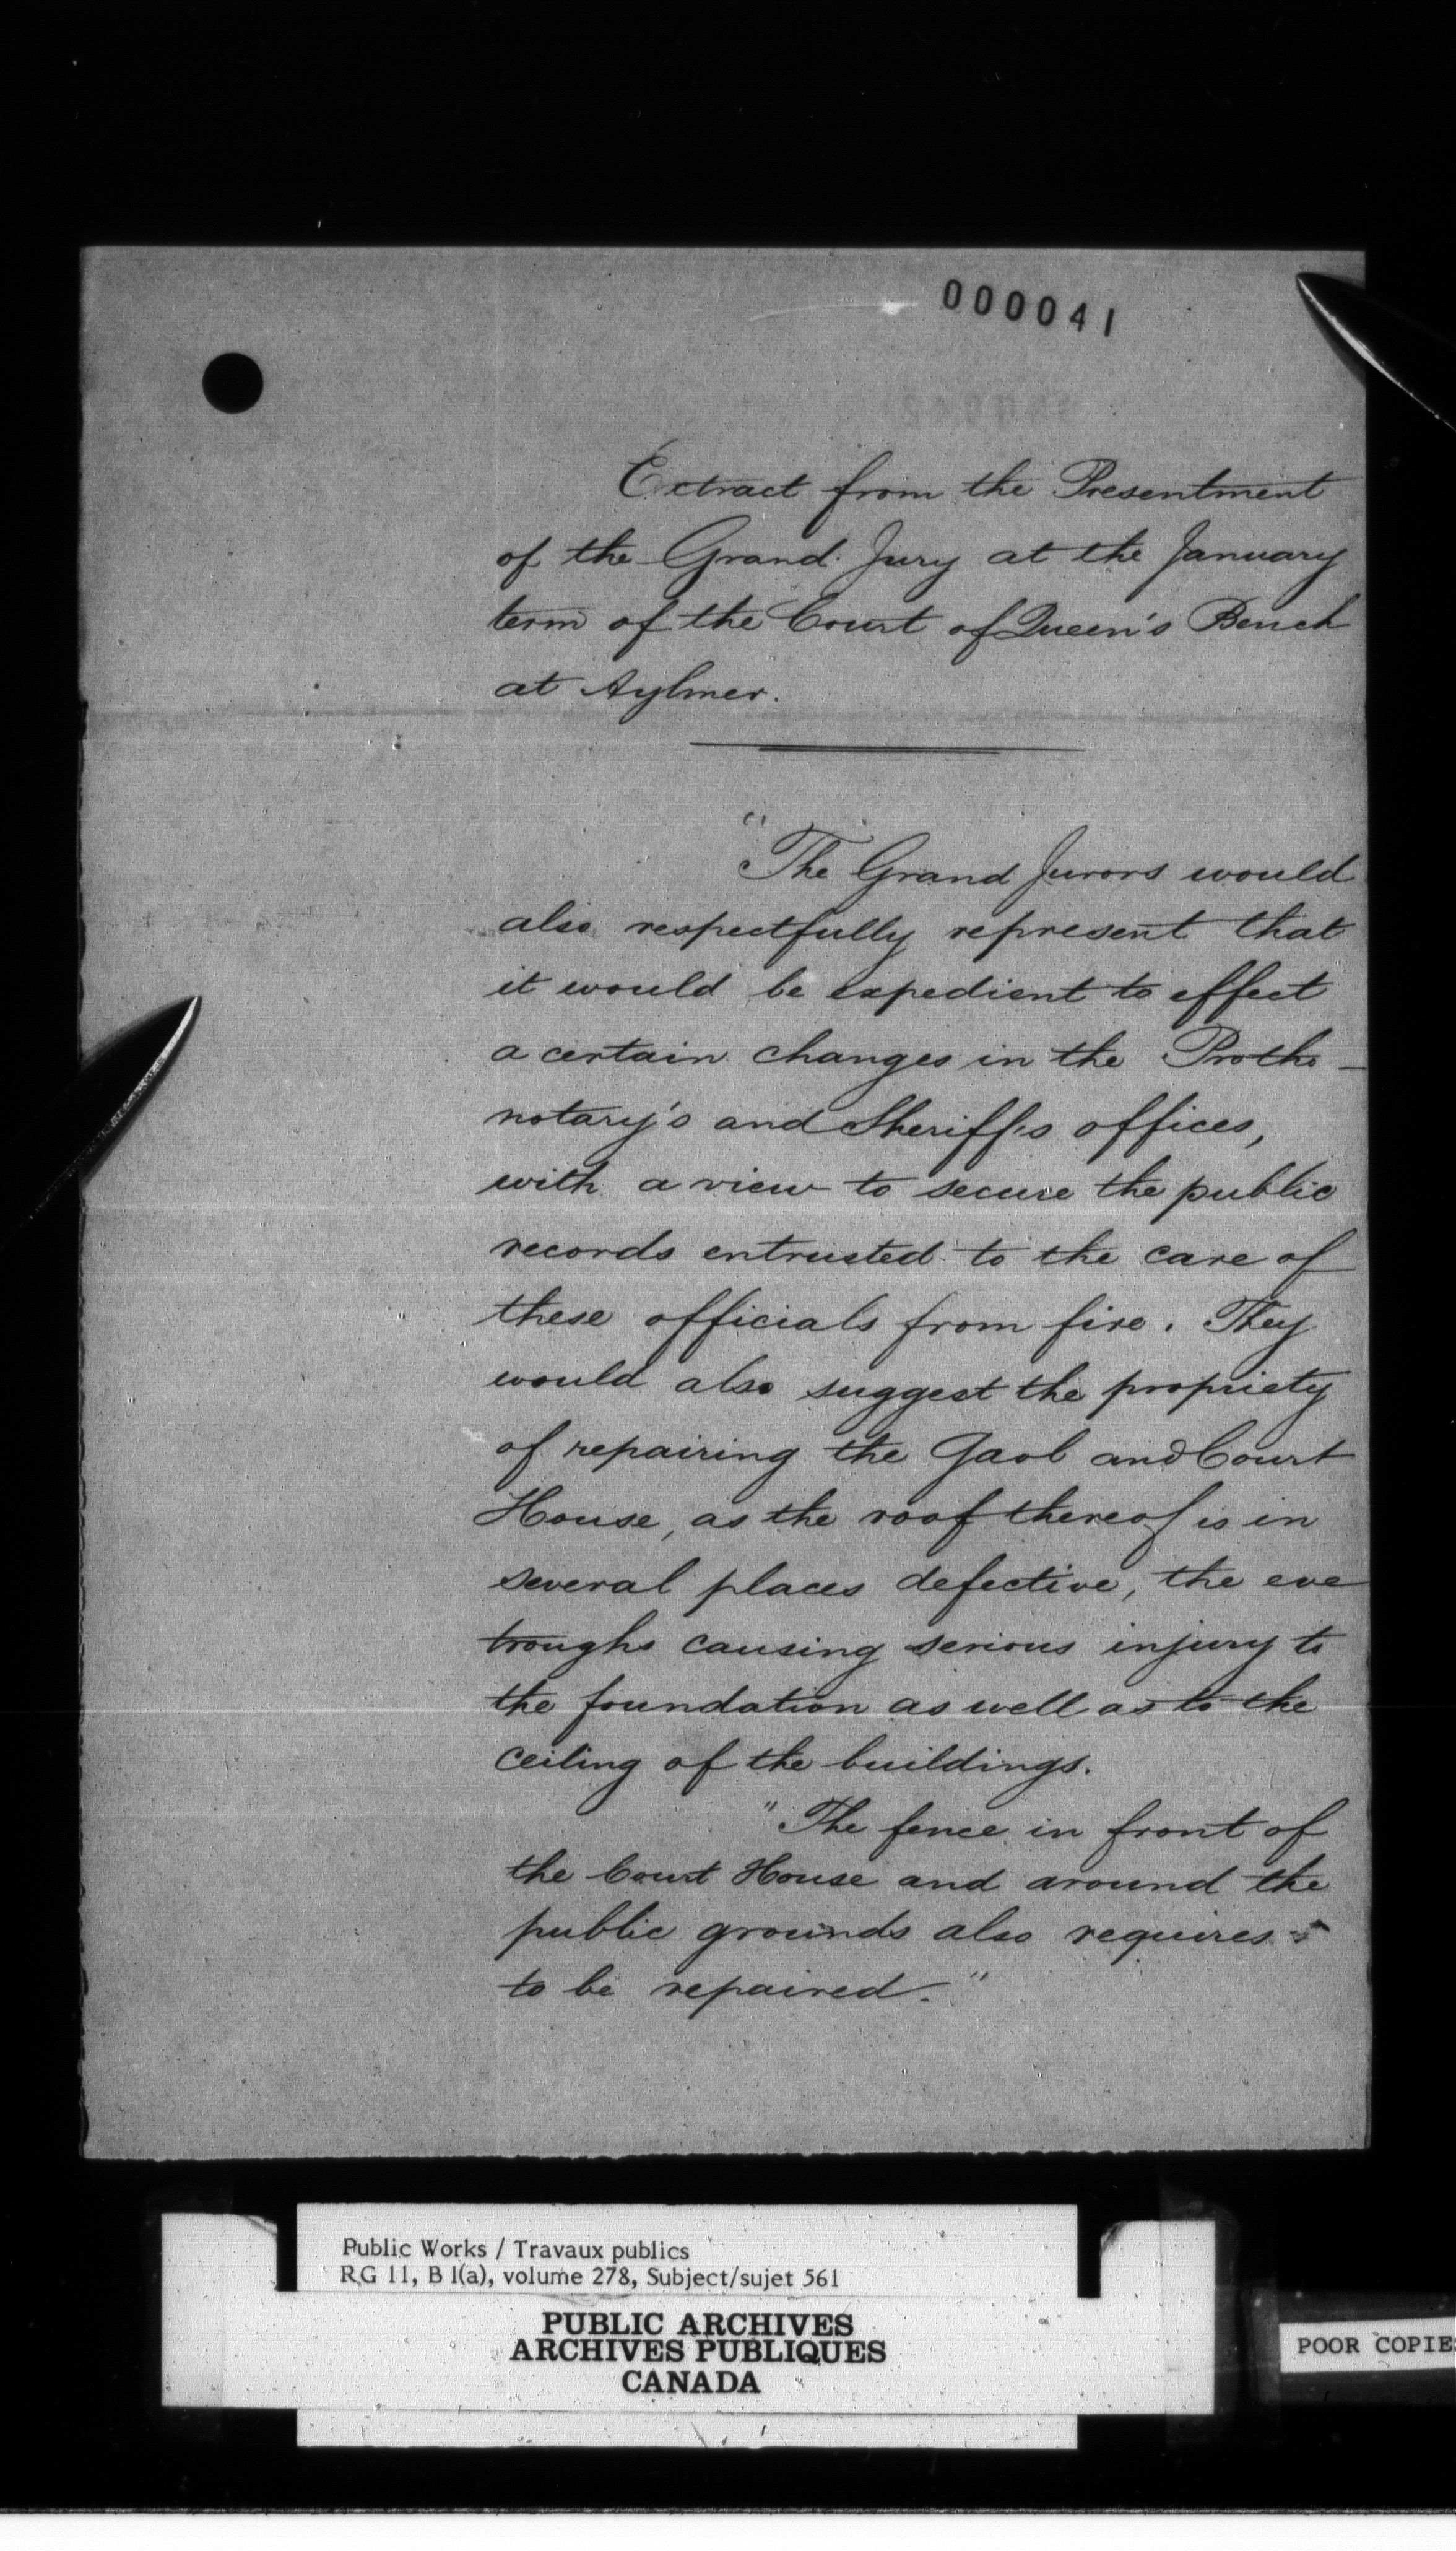 000041
Extract from the Presentment
of the Grand Jury at the January
term of the Court of Queen's Bench
at Aylmer.
"The Grand Jurors would
also respectfully represent that
it would be expedient to effect
a certain changes in the Protho-
notary's and Sheriff's offices,
with a view to secure the public
records entrusted to the care of
these officials from fire. They
would also suggest the propriety
of repairing the Gaol and Court
House, as the roof thereof is in
several places defective, the eve
troughs causing serious injury to
the foundation as well as to the
ceiling of the buildings.
"The fence in front of
the Court House and around the
public grounds also requires
to be repaired."
Public Works / Travaux publics
RG 11, B 1(a), volume 278, Subject/sujet 561
PUBLIC ARCHIVES
ARCHIVES PUBLIQUES
CANADA
POOR COPIE